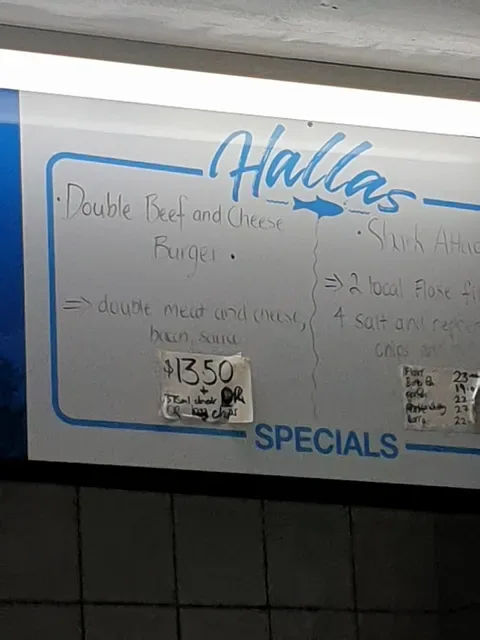 Hallas
• Double Beef and Cheese
Burger •
⇒ double meat and cheese,
bacon, sauce
$13.50
+
375ml drink OR
chips
• Shark Atta
⇒ 2 local Flake fi
4 salt and pepper
chips
23
22
27
22
SPECIALS